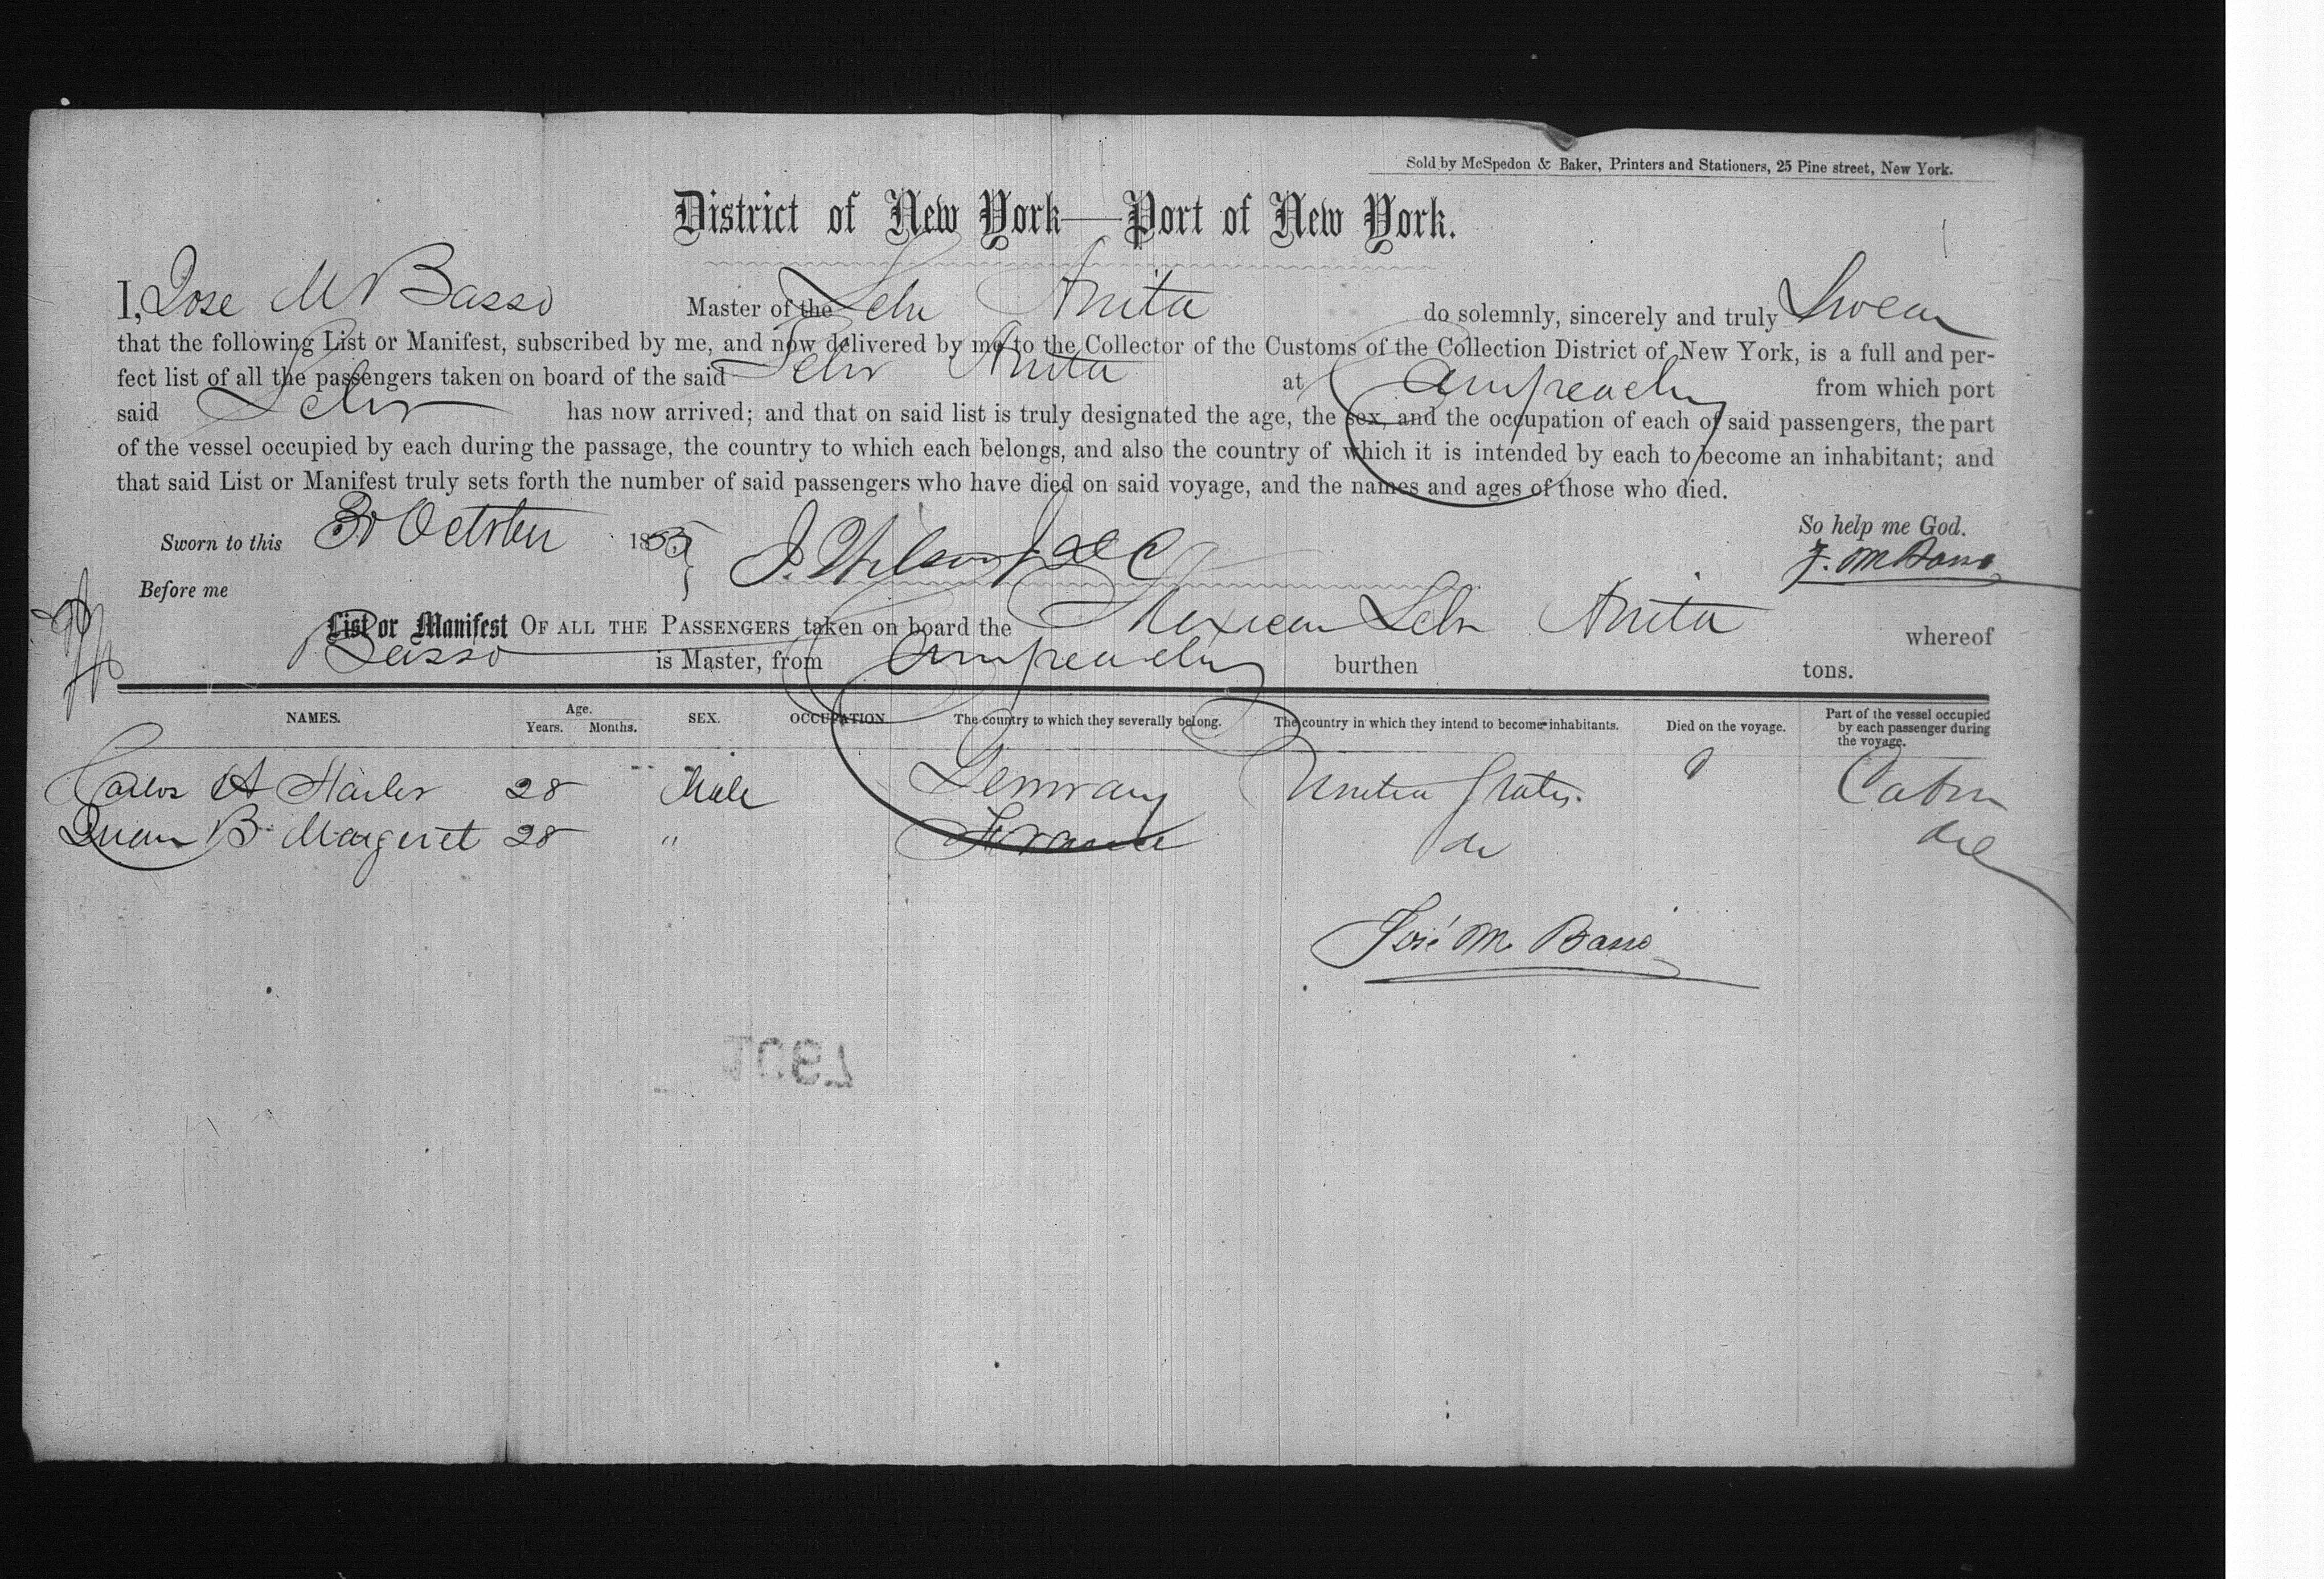 Sold by McSpedon & Baker, Printers and Stationers, 25 Pine street, New York.
District of New York—Port of New York.
I, Jose M Basso Master of the Schr Anita do solemnly, sincerely and truly Swear
that the following List or Manifest, subscribed by me, and now delivered by me to the Collector of the Customs of the Collection District of New York, is a full and per-
fect list of all the passengers taken on board of the said Schr Anita at Campeachy from which port
said Schr has now arrived; and that on said list is truly designated the age, the sex, and the occupation of each of said passengers, the part
of the vessel occupied by each during the passage, the country to which each belongs, and also the country of which it is intended by each to become an inhabitant; and
that said List or Manifest truly sets forth the number of said passengers who have died on said voyage, and the names and ages of those who died.
So help me God.
Sworn to this October 185 J. Wilson J. M Basso
Before me
List or Manifest OF ALL THE PASSENGERS taken on board the Mexican Schr Anita whereof
Basso is Master, from Campeachy burthen tons.
NAMES. Age. Years. Months. SEX. OCCUPATION. The country to which they severally belong. The country in which they intend to become inhabitants. Died on the voyage. Part of the vessel occupied by each passenger during the voyage.
Carlos A 28 Male Germany United States Cabin
Juan B Margeret 28 " France do do
José M. Basso